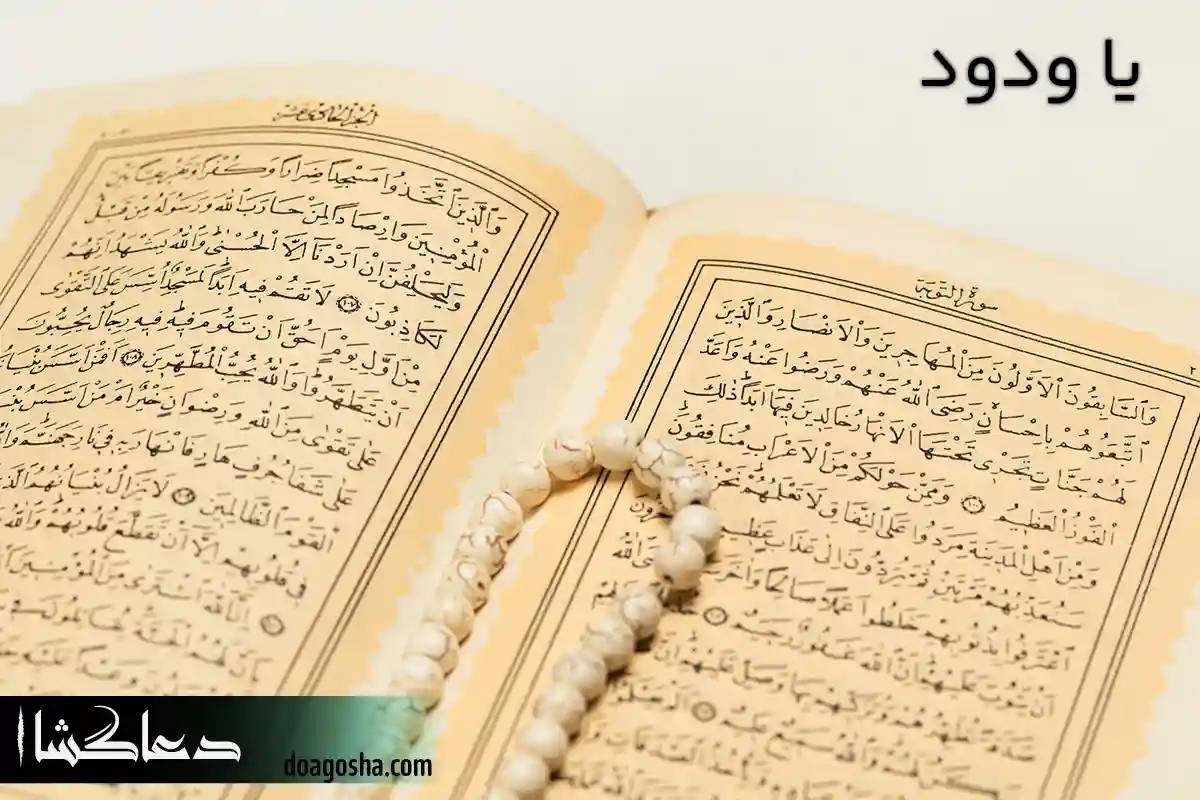 یا ودود
سورة التوبة
وَالسَّابِقُونَ الْاَوَّلُونَ مِنَ الْمُهَاجِرِينَ وَالْاَنْصَارِ وَالَّذِينَ
اتَّبَعُوهُمْ بِاِحْسَانٍ رَضِيَ اللّٰهُ عَنْهُمْ وَرَضُوا عَنْهُ وَاَعَدَّ
لَهُمْ جَنَّاتٍ تَجْرِي تَحْتَهَا الْاَنْهَارُ خَالِدِينَ فِيهَا اَبَدًا ذٰلِكَ
الْفَوْزُ الْعَظِيمُ ١٠٠ وَمِمَّنْ حَوْلَكُمْ مِنَ الْاَعْرَابِ مُنَافِقُونَ
وَمِنْ اَهْلِ الْمَدِينَةِ مَرَدُوا عَلَى النِّفَاقِ لَا تَعْلَمُهُمْ نَحْنُ
سَنُعَذِّبُهُمْ مَرَّتَيْنِ ثُمَّ يُرَدُّونَ اِلٰى عَذَابٍ عَظِيمٍ
اعْتَرَفُوا بِذُنُوبِهِمْ خَلَطُوا عَمَلًا صَالِحًا وَاٰخَرَ اللّٰهُ
اَنْ يَتُوبَ عَلَيْهِمْ اِنَّ اللّٰهَ غَفُورٌ رَحِيمٌ ١٠٢
صَدَقَةً تُطَهِّرُهُمْ وَتُزَكِّيهِمْ بِهَا وَصَلِّ عَلَيْهِمْ اِنَّ
سَكَنٌ لَهُمْ وَاللّٰهُ سَمِيعٌ عَلِيمٌ ١٠٣
الجزء الحادي عشر
وَالَّذِينَ اتَّخَذُوا مَسْجِدًا ضِرَارًا وَكُفْرًا وَتَفْرِيقًا بَيْنَ
الْمُؤْمِنِينَ وَاِرْصَادًا لِمَنْ حَارَبَ اللّٰهَ وَرَسُولَهُ مِنْ قَبْلُ
وَلَيَحْلِفُنَّ اِنْ اَرَدْنَا اِلَّا الْحُسْنٰى وَاللّٰهُ يَشْهَدُ اِنَّهُمْ
لَكَاذِبُونَ ١٠٧ لَا تَقُمْ فِيهِ اَبَدًا لَمَسْجِدٌ اُسِّسَ عَلَى التَّقْوٰى
مِنْ اَوَّلِ يَوْمٍ اَحَقُّ اَنْ تَقُومَ فِيهِ فِيهِ رِجَالٌ يُحِبُّونَ
اَنْ يَتَطَهَّرُوا وَاللّٰهُ يُحِبُّ الْمُطَّهِّرِينَ ١٠٨ اَفَمَنْ اَسَّسَ
عَلٰى تَقْوٰى مِنَ اللّٰهِ وَرِضْوَانٍ خَيْرٌ اَمْ مَنْ اَسَّسَ
عَلٰى شَفَا جُرُفٍ هَارٍ فَانْهَارَ بِهِ فِي نَارِ جَهَنَّمَ
الْقَوْمَ الظَّالِمِينَ ١٠٩ لَا يَزَالُ بُنْيَانُهُمُ
فِي قُلُوبِهِمْ اِلَّا اَنْ تَقَطَّعَ قُلُوبُهُمْ وَاللّٰهُ
اِنَّ اللّٰهَ اشْتَرٰى مِنَ الْمُؤْمِنِينَ
بِاَنَّ لَهُمُ الْجَنَّةَ
دعاگشا
doagosha.com